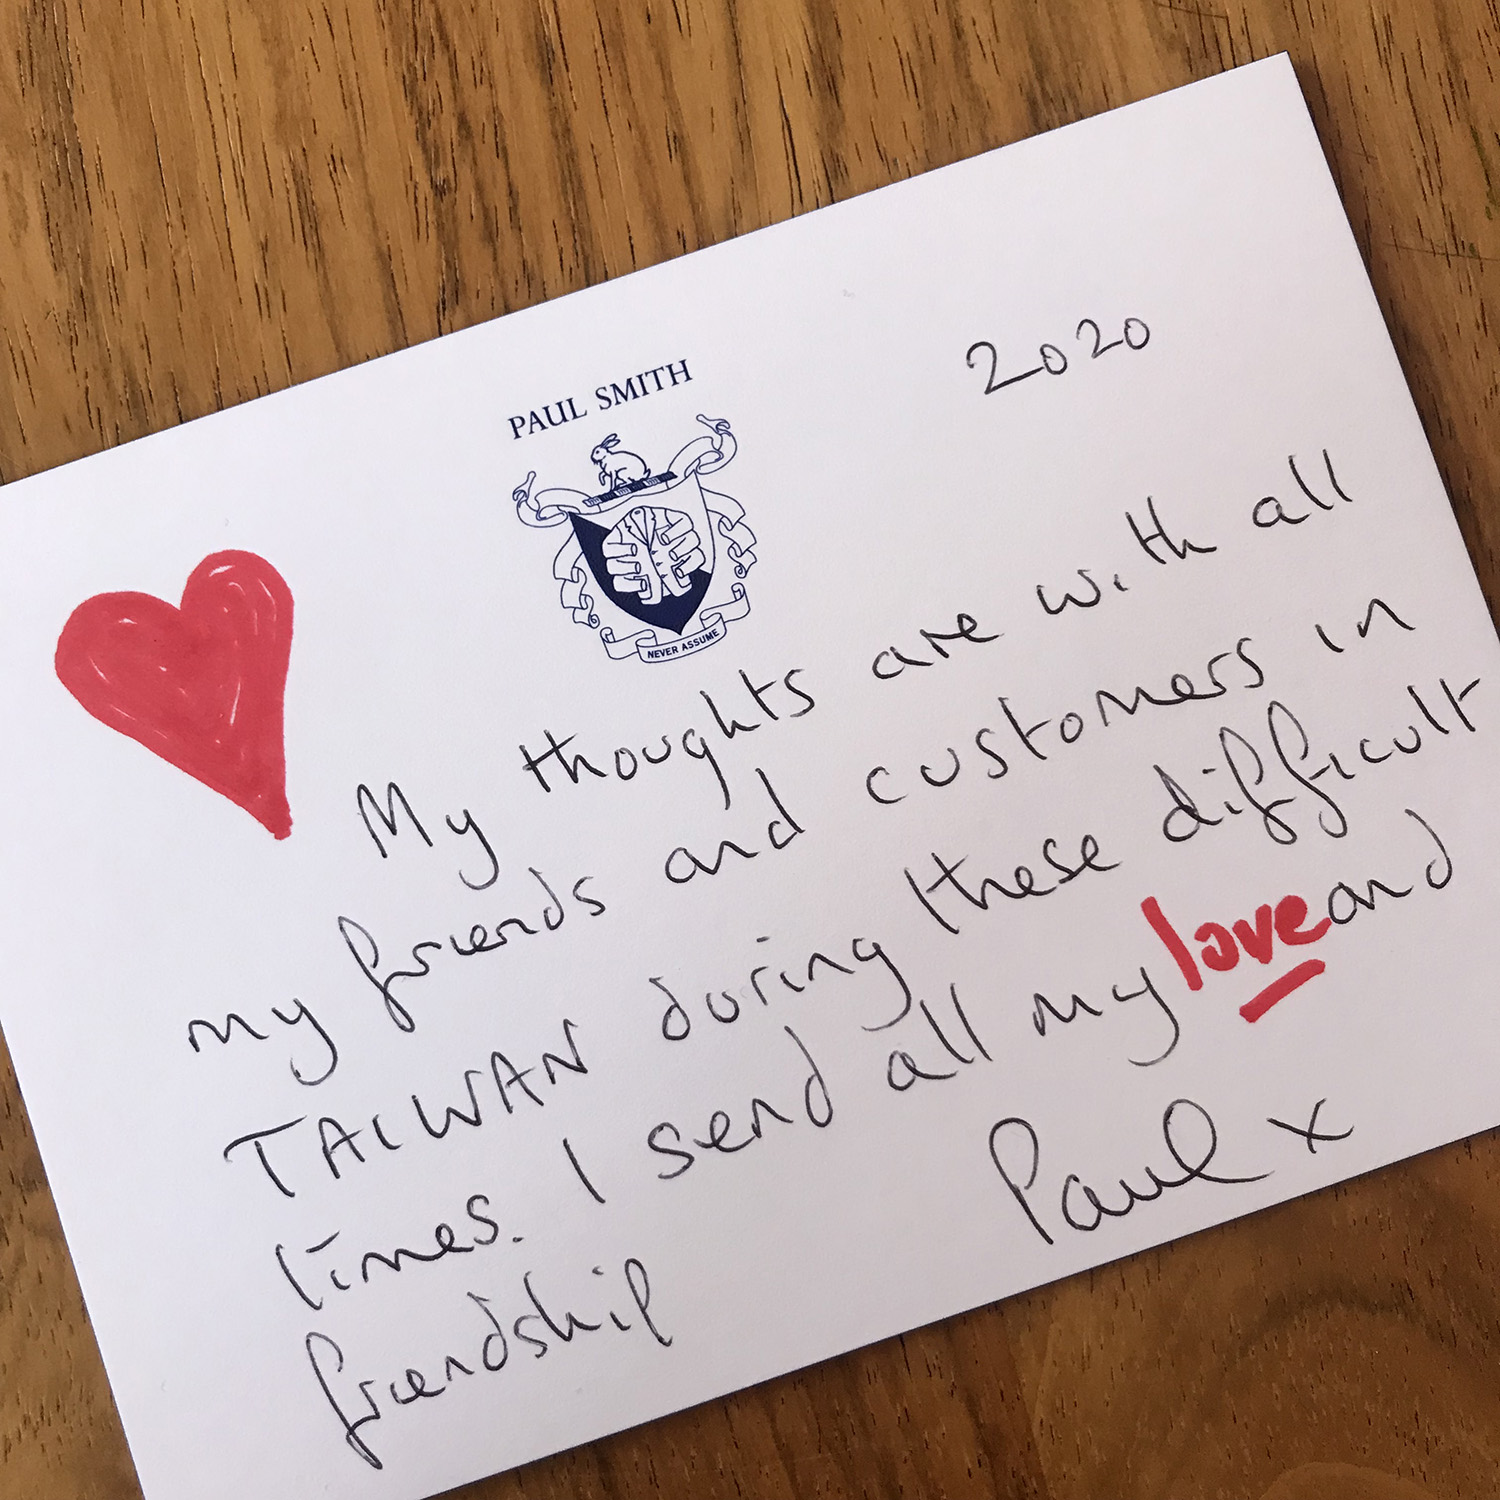 2020
PAUL SMITH
NEVER ASSUME
My thoughts are with all
my friends and customers in
TAIWAN during these difficult
times. I send all my love and
friendship
Paul x